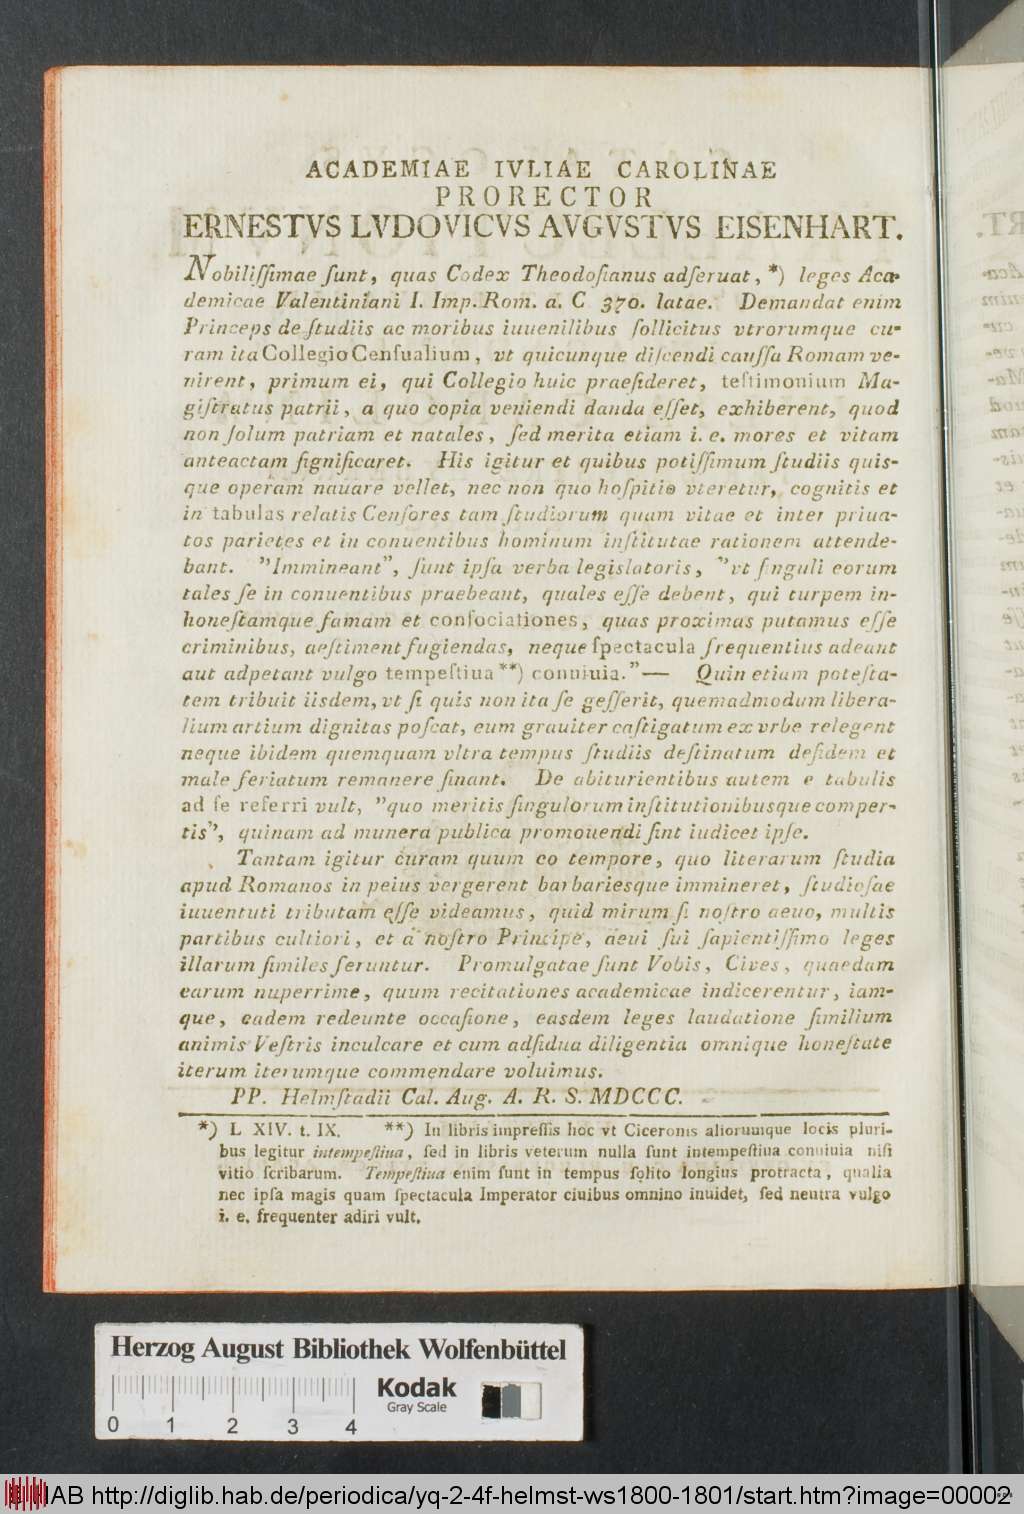 ACADEMIAE IVLIAE CAROLINAE
PRORECTOR
ERNESTVS LVDOVICVS AVGVSTVS EISENHART.
Nobiliſſimae ſunt, quas Codex Theodoſianus adſeruat, *) leges Aca-
demicae Valentiniani I. Imp. Rom. a. C 370. latae. Demandat enim
Princeps de ſtudiis ac moribus iuuenilibus ſollicitus vtrorumque cu-
ram ita Collegio Cenſualium, vt quicunque diſcendi cauſſa Romam ve-
nirent, primum ei, qui Collegio huic praeſideret, teſtimonium Ma-
giſtratus patrii, a quo copia veniendi danda eſſet, exhiberent, quod
non ſolum patriam et natales, ſed merita etiam i. e. mores et vitam
anteactam ſignificaret. His igitur et quibus potiſſimum ſtudiis quis-
que operam nauare vellet, nec non quo hoſpitio vteretur, cognitis et
in tabulas relatis Cenſores tam ſtudiorum quam vitae et inter priua-
tos parietes et in conuentibus hominum inſtitutae rationem attende-
bant. ”Immineant”, ſunt ipſa verba legislatoris, ”vt ſinguli eorum
tales ſe in conuentibus praebeant, quales eſſe debent, qui turpem in-
honeſtamque famam et conſociationes, quas proximas putamus eſſe
criminibus, aeſtiment fugiendas, neque ſpectacula frequentius adeant
aut adpetant vulgo tempeſtiua **) conuiuia.” — Quin etiam poteſta-
tem tribuit iisdem, vt ſi quis non ita ſe geſſerit, quemadmodum libera-
lium artium dignitas poſcat, eum grauiter caſtigatum ex vrbe relegent
neque ibidem quemquam vltra tempus ſtudiis deſtinatum deſidem et
male feriatum remanere ſinant. De abiturientibus autem e tabulis
ad ſe referri vult, ”quo meritis ſingulorum inſtitutionibusque comper-
tis”, quinam ad munera publica promouendi ſint iudicet ipſe.
Tantam igitur curam quum eo tempore, quo literarum ſtudia
apud Romanos in peius vergerent barbariesque immineret, ſtudioſae
iuuentuti tributam eſſe videamus, quid mirum ſi noſtro aeuo, multis
partibus cultiori, et a noſtro Principe, aeui ſui ſapientiſſimo leges
illarum ſimiles feruntur. Promulgatae ſunt Vobis, Cives, quaedam
earum nuperrime, quum recitationes academicae indicerentur, iam-
que, eadem redeunte occaſione, easdem leges laudatione ſimilium
animis Veſtris inculcare et cum adſidua diligentia omnique honeſtate
iterum iterumque commendare voluimus.
PP. Helmſtadii Cal. Aug. A. R. S. MDCCC.
*) L XIV. t. IX. **) In libris impreſſis hoc vt Ciceronis aliorumque locis pluri-
bus legitur intempeſtiua, ſed in libris veterum nulla ſunt intempeſtiua conuiuia niſi
vitio ſcribarum. Tempeſtiua enim ſunt in tempus ſolito longius protracta, qualia
nec ipſa magis quam ſpectacula Imperator ciuibus omnino inuidet, ſed neutra vulgo
i. e. frequenter adiri vult.
Herzog August Bibliothek Wolfenbüttel
Kodak
Gray Scale
0 1 2 3 4
HAB http://diglib.hab.de/periodica/yq-2-4f-helmst-ws1800-1801/start.htm?image=00002